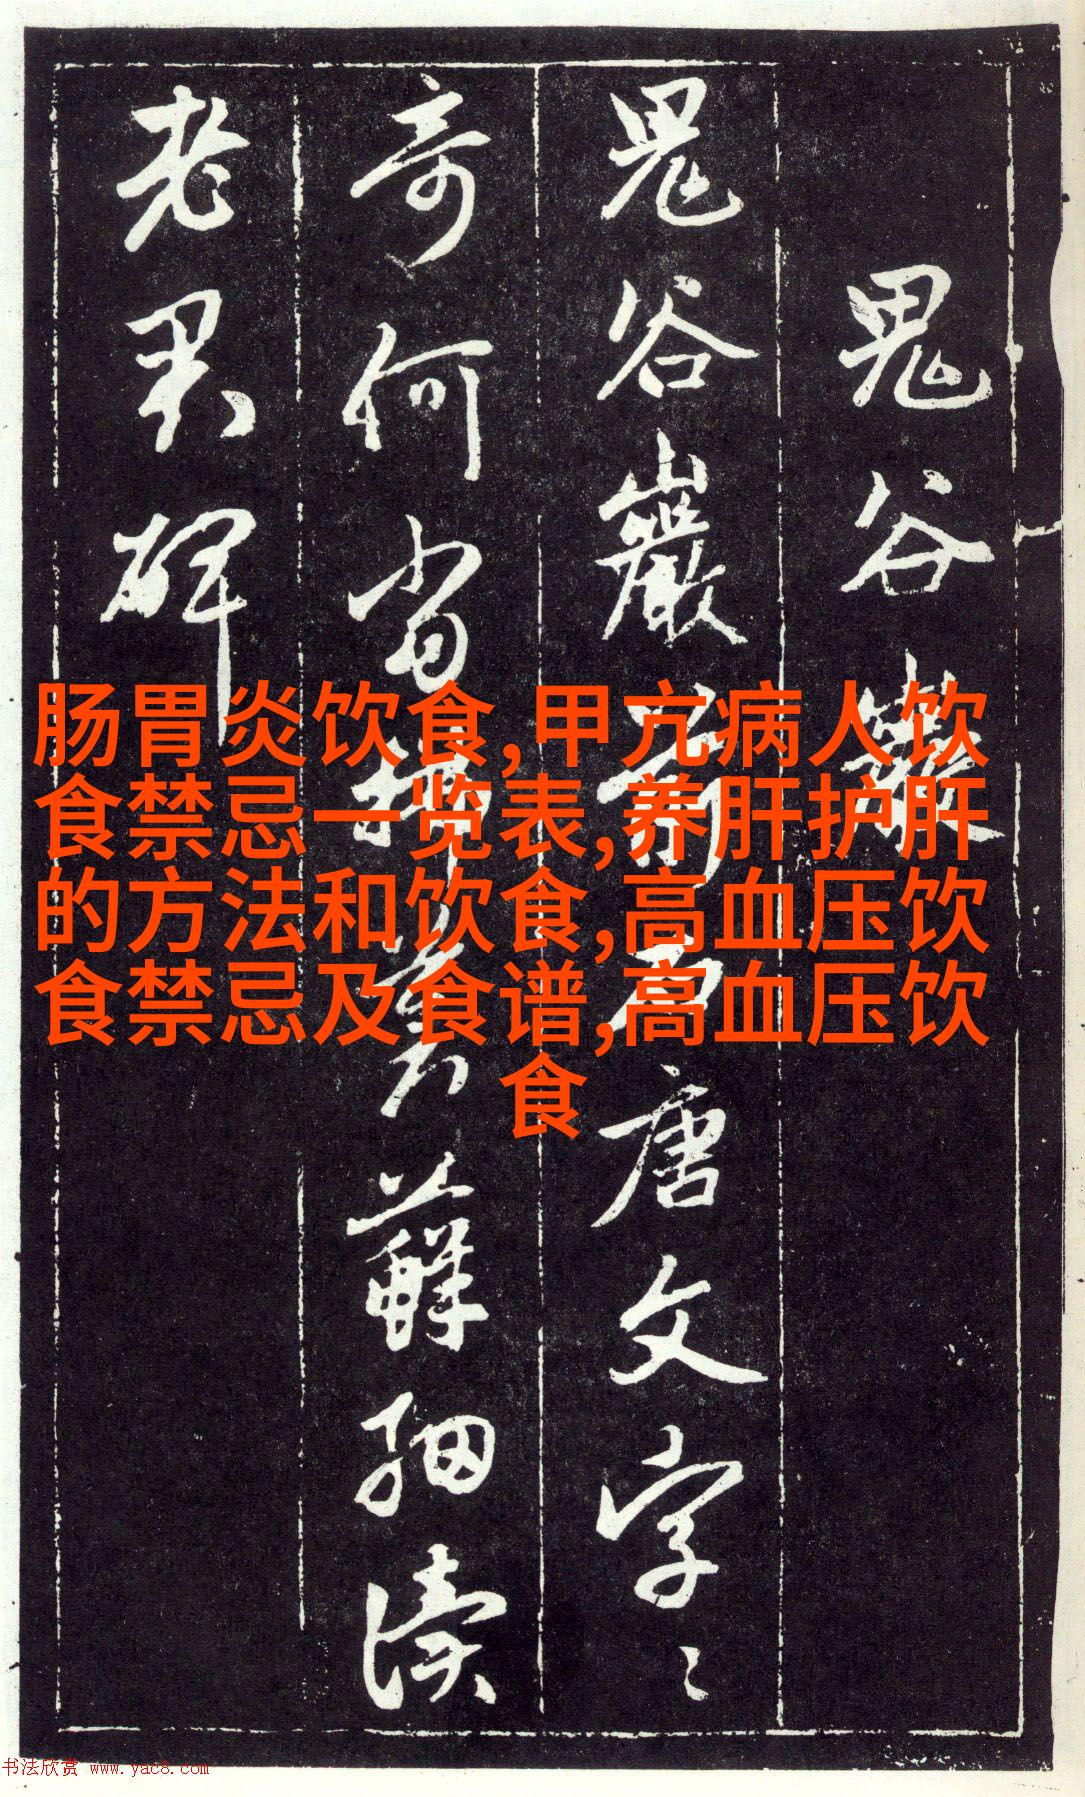 鬼谷巖
鬼谷巖
唐文字〻
奇何當掃蒼蘚細讀
老君碑
肠胃炎饮食,甲亢病人饮
食禁忌一览表,养肝护肝
的方法和饮食,高血压饮
食禁忌及食谱,高血压饮
食
书法欣赏 www.yac8.com